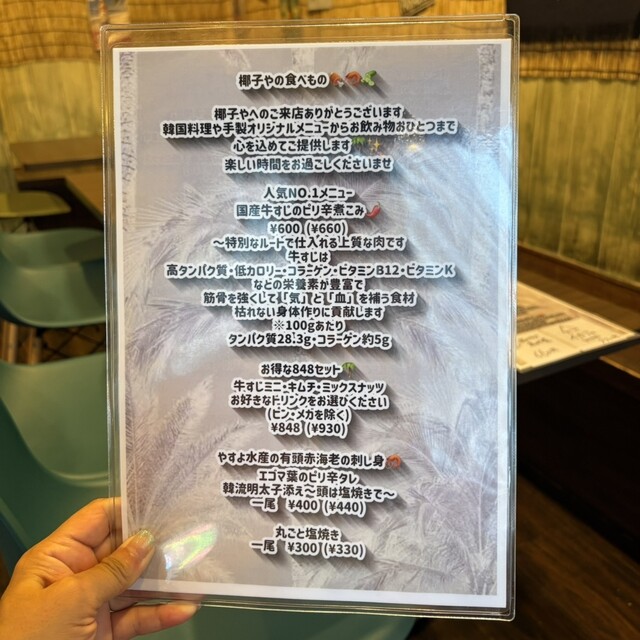 椰子やの食べもの🍖🦐🥬
椰子やへのご来店ありがとうございます
韓国料理や手製オリジナルメニューからお飲み物おひとつまで
心を込めてご提供します🌴✨
楽しい時間をお過ごしくださいませ
人気NO.1メニュー
国産牛すじのピリ辛煮こみ🌶️
¥600 (¥660)
〜特別なルートで仕入れる上質な肉です
牛すじは
高タンパク質・低カロリー・コラーゲン・ビタミンB12・ビタミンK
などの栄養素が豊富で
筋骨を強くして「気」と「血」を補う食材
枯れない身体作りに貢献します
※100gあたり
タンパク質28.3g・コラーゲン約5g
お得な848セット🌴
牛すじミニ・キムチ・ミックスナッツ
お好きなドリンクをお選びください
(ビン・メガを除く)
¥848 (¥930)
やすよ水産の有頭赤海老の刺し身🦐
エゴマ葉のピリ辛タレ
韓流明太子添え〜頭は塩焼きで〜
一尾 ¥400 (¥440)
丸ごと塩焼き
一尾 ¥300 (¥330)